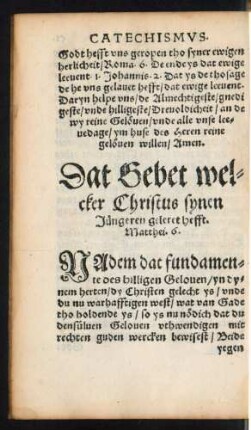 CATECHISMVS.
Godt hefft vns geropen tho syner ewigen
herlicheit / Roma. 6. De ende ys dat ewige
leeuent 1. Johannis. 2. Dat ys de thosage
de he vns gelauet hefft / dat ewige leeuent.
Daryn helpe vns / de Almechtigeste / gnedi
geste / vnde hilligeste / Dreuoldicheit / an de
wy reine Gelöuen / vnde alle vnse lee-
uedage / ym huse des Heren reine
gelöuen willen / Amen.
Dat Gebet wel-
cker Christus synen
Jüngeren geleret hefft.
Matthei. 6.
NAdem dat fundamen-
te des hilligen Gelouen / yn dy-
nem herten / dy Christen gelecht ys / vnde
du nu warhafftigen west / wat van Gade
tho holdende ys / so ys nu nödich dat du
densüluen Gelouen vthwendigen mit
rechten guden wercken bewisest / Beide
yegen